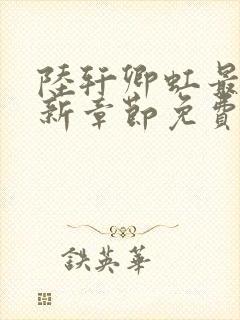 陸轩卿虹最
新章節免費
鉄英華